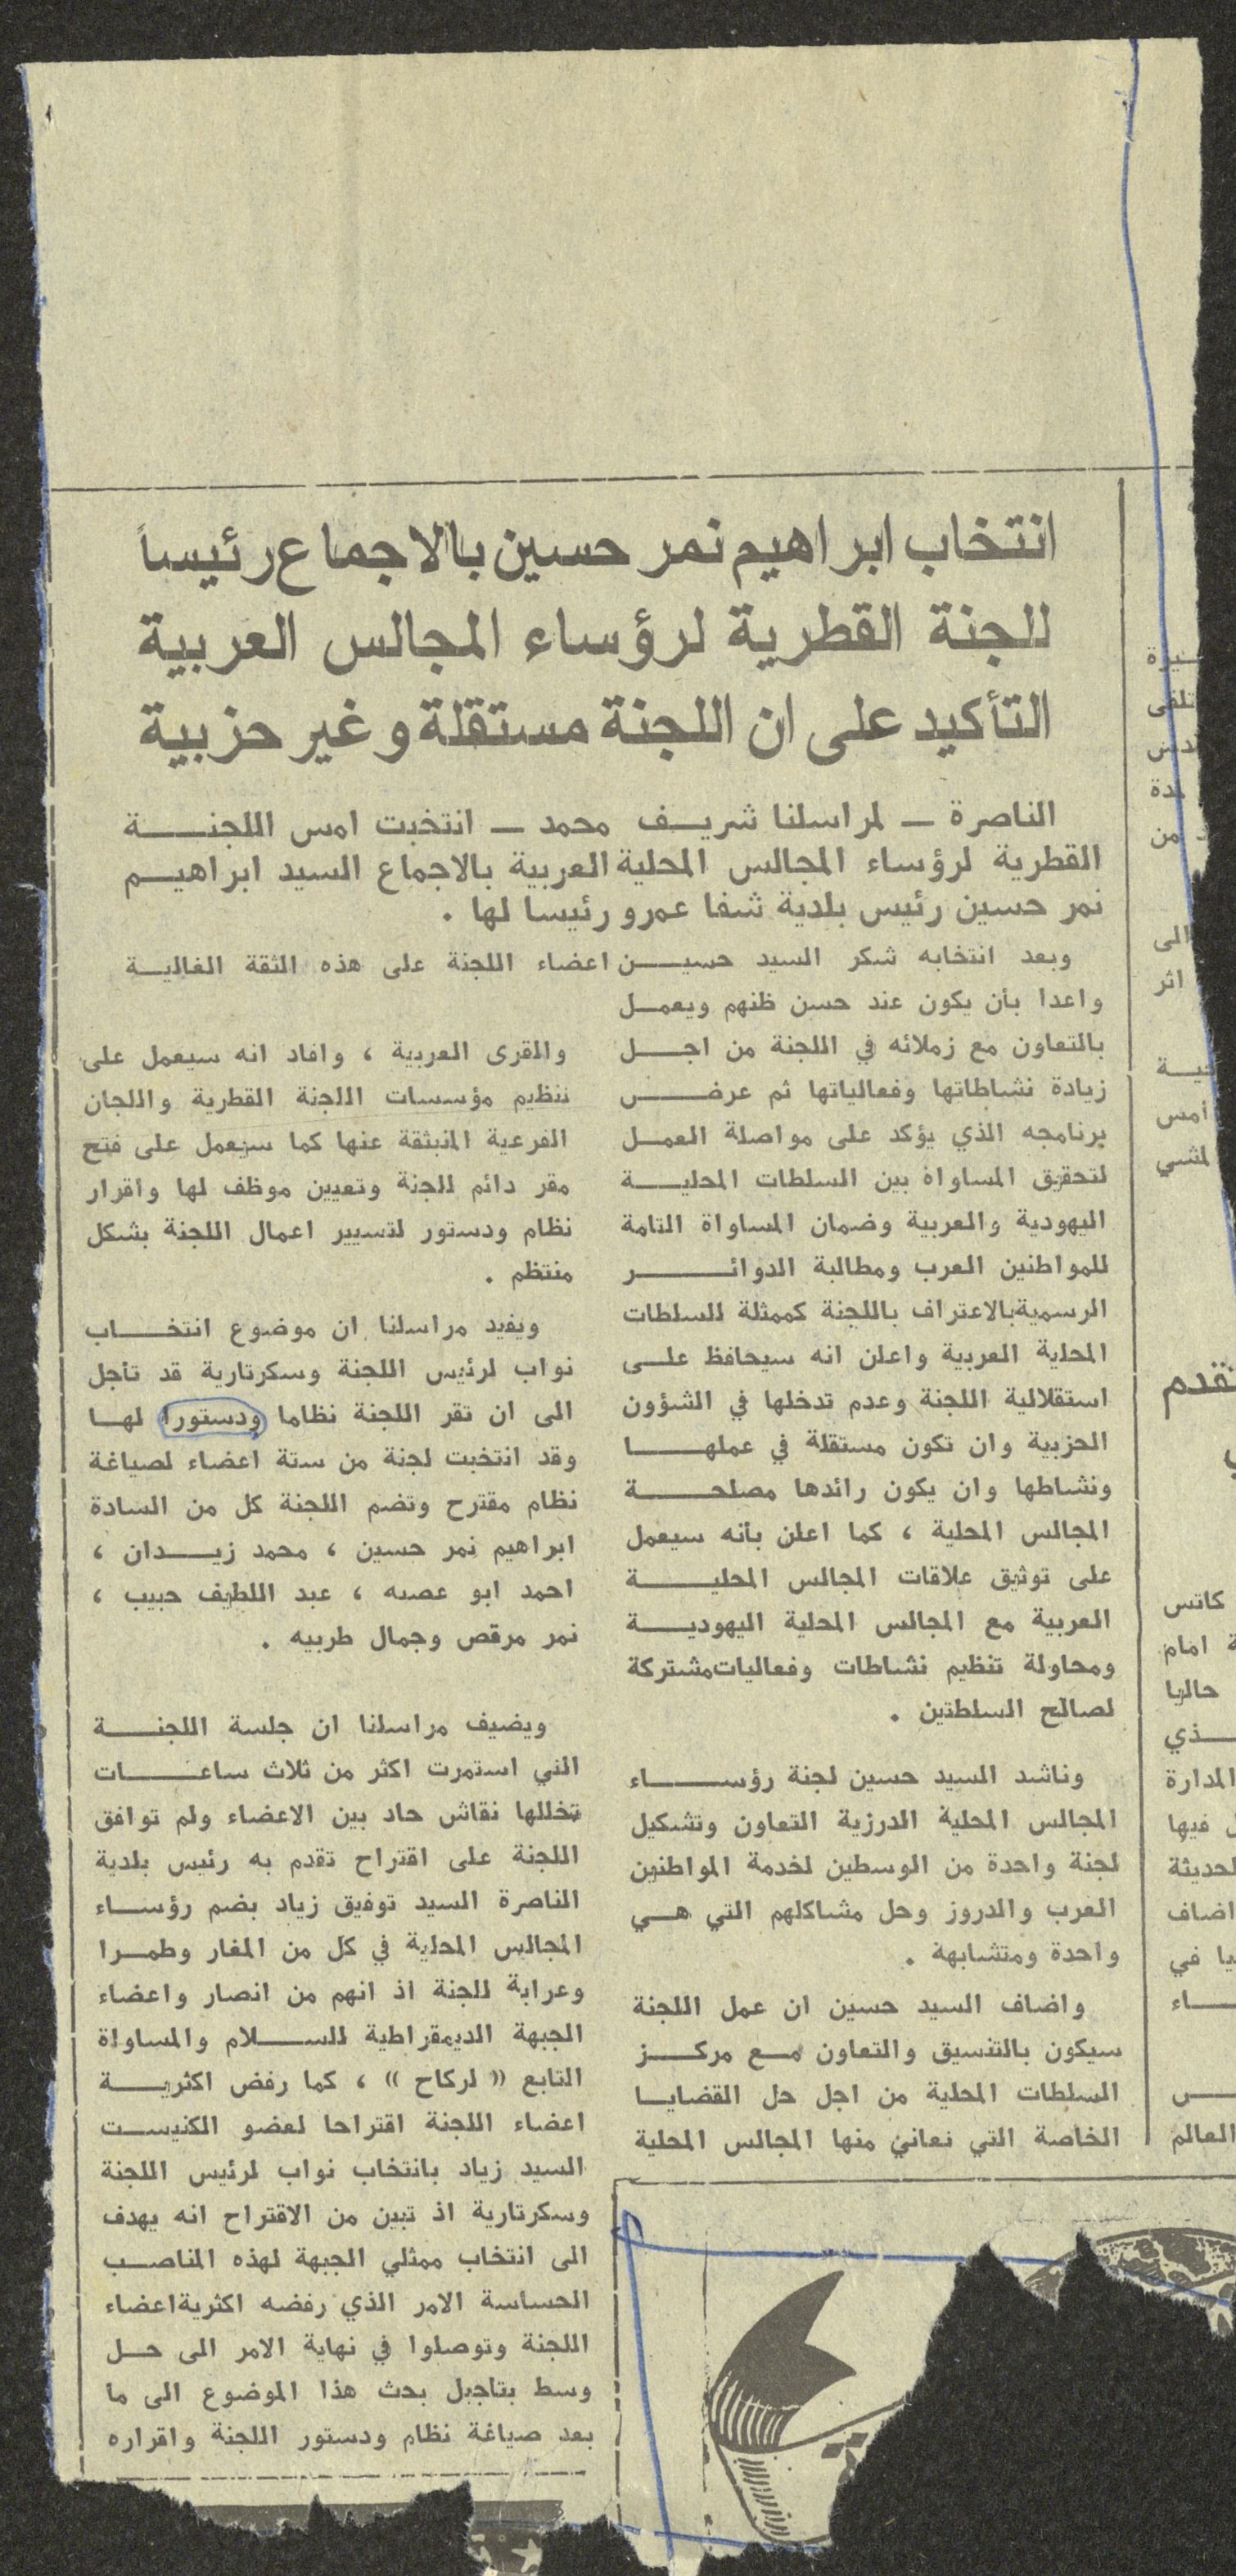 انتخاب ابراهيم نمر حسين بالاجماع رئيساً
للجنة القطرية لرؤساء المجالس العربية
التأكيد على ان اللجنة مستقلة وغير حزبية
الناصرة ــ لمراسلنا شريف محمد ــ انتخبت امس اللجنة
القطرية لرؤساء المجالس المحلية العربية بالاجماع السيد ابراهيم
نمر حسين رئيس بلدية شفا عمرو رئيسا لها .
وبعد انتخابه شكر السيد حسين اعضاء اللجنة على هذه الثقة الغالية
واعدا بأن يكون عند حسن ظنهم ويعمل
بالتعاون مع زملائه في اللجنة من اجل
زيادة نشاطاتها وفعالياتها ثم عرض
برنامجه الذي يؤكد على مواصلة العمل
لتحقيق المساواة بين السلطات المحلية
اليهودية والعربية وضمان المساواة التامة
للمواطنين العرب ومطالبة الدوائر
الرسمية بالاعتراف باللجنة كممثلة للسلطات
المحلية العربية واعلن انه سيحافظ على
استقلالية اللجنة وعدم تدخلها في الشؤون
الحزبية وان تكون مستقلة في عملها
ونشاطها وان يكون رائدها مصلحة
المجالس المحلية ، كما اعلن بأنه سيعمل
على توثيق علاقات المجالس المحلية
العربية مع المجالس المحلية اليهودية
ومحاولة تنظيم نشاطات وفعاليات مشتركة
لصالح السلطتين .
وناشد السيد حسين لجنة رؤساء
المجالس المحلية الدرزية التعاون وتشكيل
لجنة واحدة من الوسطين لخدمة المواطنين
العرب والدروز وحل مشاكلهم التي هي
واحدة ومتشابهة .
واضاف السيد حسين ان عمل اللجنة
سيكون بالتنسيق والتعاون مع مركز
السلطات المحلية من اجل حل القضايا
الخاصة التي تعاني منها المجالس المحلية
والقرى العربية ، وافاد انه سيعمل على
تنظيم مؤسسات اللجنة القطرية واللجان
الفرعية المنبثقة عنها كما سيعمل على فتح
مقر دائم للجنة وتعيين موظف لها واقرار
نظام ودستور لتسيير اعمال اللجنة بشكل
منتظم .
ويفيد مراسلنا ان موضوع انتخاب
نواب لرئيس اللجنة وسكرتارية قد تأجل
الى ان تقر اللجنة نظاما ودستورا لها
وقد انتخبت لجنة من ستة اعضاء لصياغة
نظام مقترح وتضم اللجنة كل من السادة
ابراهيم نمر حسين ، محمد زيدان ،
احمد ابو عصبه ، عبد اللطيف حبيب ،
نمر مرقص وجمال طربيه .
ويضيف مراسلنا ان جلسة اللجنة
التي استمرت اكثر من ثلاث ساعات
تخللها نقاش حاد بين الاعضاء ولم توافق
اللجنة على اقتراح تقدم به رئيس بلدية
الناصرة السيد توفيق زياد بضم رؤساء
المجالس المحلية في كل من المغار وطمرا
وعرابة للجنة اذ انهم من انصار واعضاء
الجبهة الديمقراطية للسلام والمساواة
التابع « لركاح » ، كما رفض اكثرية
اعضاء اللجنة اقتراحا لعضو الكنيست
السيد زياد بانتخاب نواب لرئيس اللجنة
وسكرتارية اذ تبين من الاقتراح انه يهدف
الى انتخاب ممثلي الجبهة لهذه المناصب
الحساسة الامر الذي رفضه اكثرية اعضاء
اللجنة وتوصلوا في نهاية الامر الى حل
وسط بتاجيل بحث هذا الموضوع الى ما
بعد صياغة نظام ودستور اللجنة واقراره
من
الى
اثر
أمس
كاتس
امام
حاليا
المدارة
فيها
اضاف
في
العالم